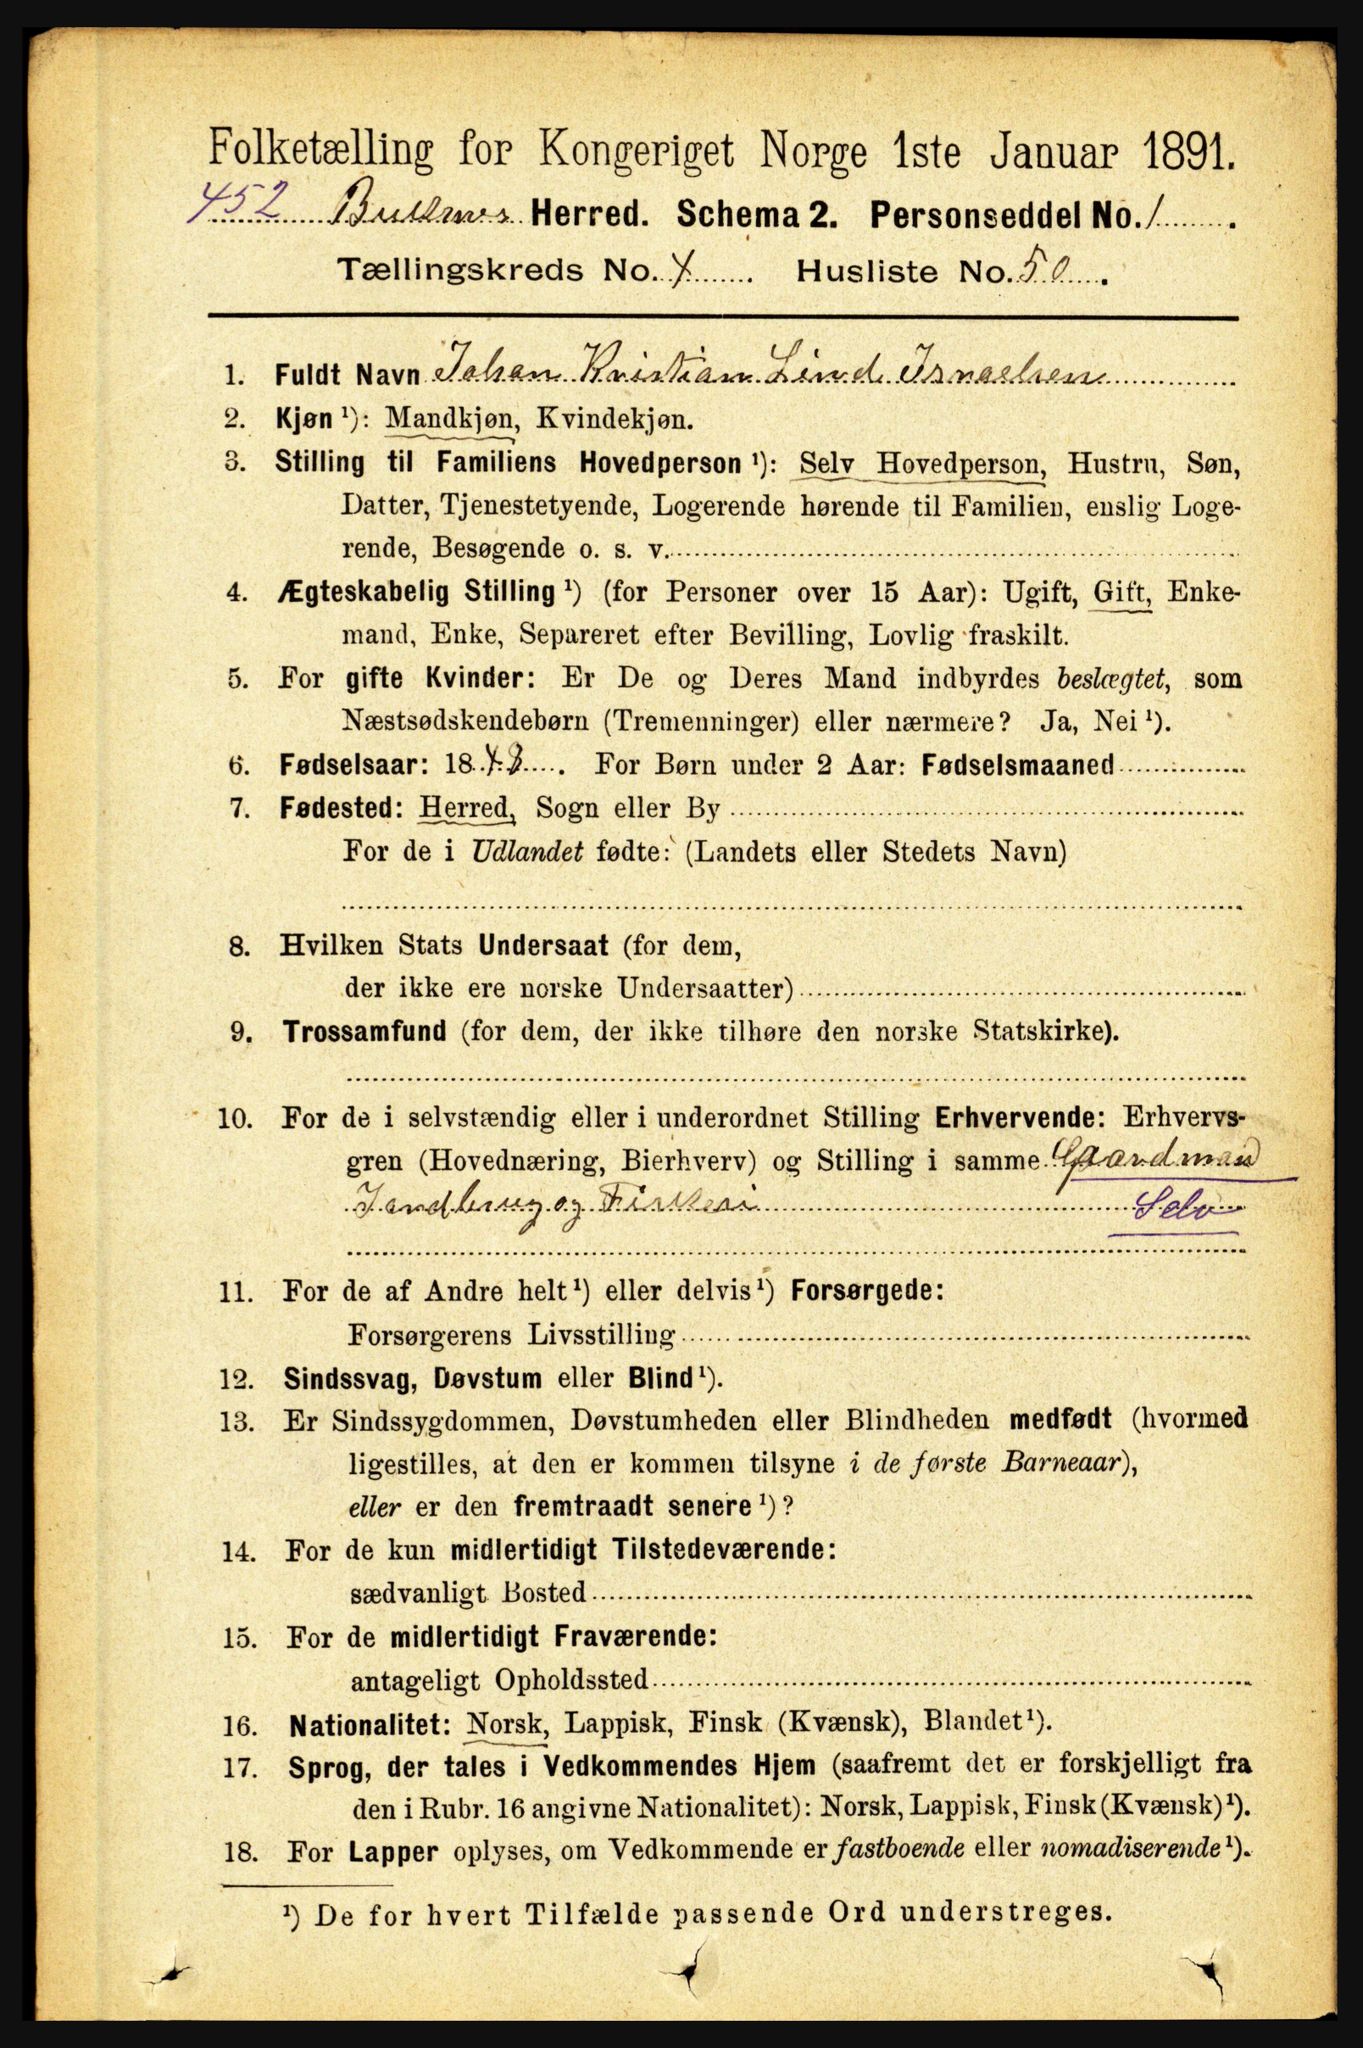 Folketælling for Kongeriget Norge 1ste Januar 1891.
452 Buksnes Herred. Schema 2. Personseddel No. 1.
Tællingskreds No. 4. Husliste No. 50.
1. Fuldt Navn Johan Kristian Lind Israelsen
2. Kjøn ¹): Mandkjøn, Kvindekjøn.
3. Stilling til Familiens Hovedperson ¹): Selv Hovedperson, Hustru, Søn,
Datter, Tjenestetyende, Logerende hørende til Familien, enslig Loge-
rende, Besøgende o. s. v.
4. Ægteskabelig Stilling ¹) (for Personer over 15 Aar): Ugift, Gift, Enke-
mand, Enke, Separeret efter Bevilling, Lovlig fraskilt.
5. For gifte Kvinder: Er De og Deres Mand indbyrdes beslægtet, som
Næstsødskendebørn (Tremenninger) eller nærmere? Ja, Nei ¹).
6. Fødselsaar: 1843. For Børn under 2 Aar: Fødselsmaaned
7. Fødested: Herred, Sogn eller By
For de i Udlandet fødte: (Landets eller Stedets Navn)
8. Hvilken Stats Undersaat (for dem,
der ikke ere norske Undersaatter)
9. Trossamfund (for dem, der ikke tilhøre den norske Statskirke).
10. For de i selvstændig eller i underordnet Stilling Erhvervende: Erhvervs-
gren (Hovednæring, Bierhverv) og Stilling i samme Gaardmand
Jordbrug og Fiskeri Selv
11. For de af Andre helt ¹) eller delvis ¹) Forsørgede:
Forsørgerens Livsstilling
12. Sindssvag, Døvstum eller Blind ¹).
13. Er Sindssygdommen, Døvstumheden eller Blindheden medfødt (hvormed
ligestilles, at den er kommen tilsyne i de første Barneaar),
eller er den fremtraadt senere ¹)?
14. For de kun midlertidigt Tilstedeværende:
sædvanligt Bosted
15. For de midlertidigt Fraværende:
antageligt Opholdssted
16. Nationalitet: Norsk, Lappisk, Finsk (Kvænsk), Blandet ¹).
17. Sprog, der tales i Vedkommendes Hjem (saafremt det er forskjelligt fra
den i Rubr. 16 angivne Nationalitet): Norsk, Lappisk, Finsk (Kvænsk) ¹).
18. For Lapper oplyses, om Vedkommende er fastboende eller nomadiserende ¹).
¹) De for hvert Tilfælde passende Ord understreges.